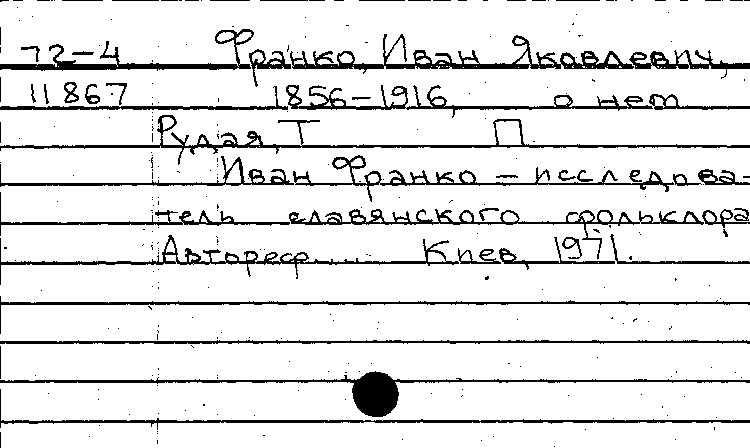 72-4 Франко, Иван Яковлевич,
11867 1856-1916, о нем
Рудая, Т П
Иван Франко - исследова-
тель славянского фольклора
Автореф.... Киев, 1971.